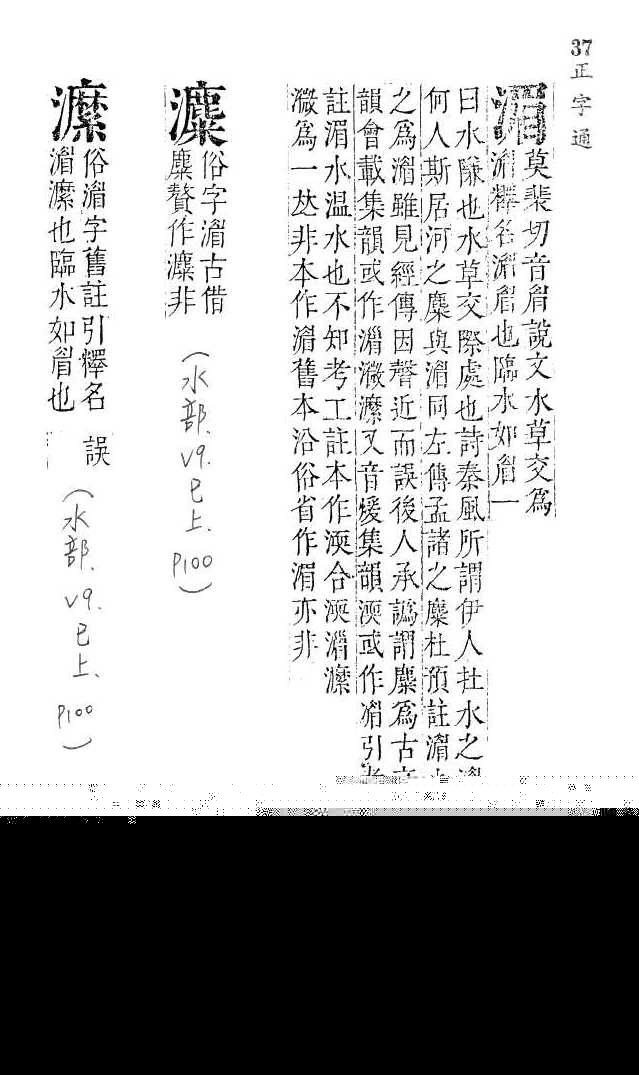 37 正字通
湄
莫裴切音眉說文水草交爲
湄釋名湄眉也臨水如眉一
曰水隒也水草交際處也詩秦風所謂伊人在水之湄
何人斯居河之麋與湄同左傳孟諸之麋杜預註湄
之爲湄雖見經傳因聲近而誤後人承譌謂麋爲古
韻會載集韻或作湄溦又音煖集韻渜或作引考
註湄水温水也不知考工註本作渜合渜湄
溦爲一𠀤非本作湄舊本沿俗省作湄亦非
俗字湄古借
麋贅作非
(水部. V9. 巳上. P100)
俗湄字舊註引釋名
湄也臨水如眉也
誤
(水部. V9. 巳上. P100)